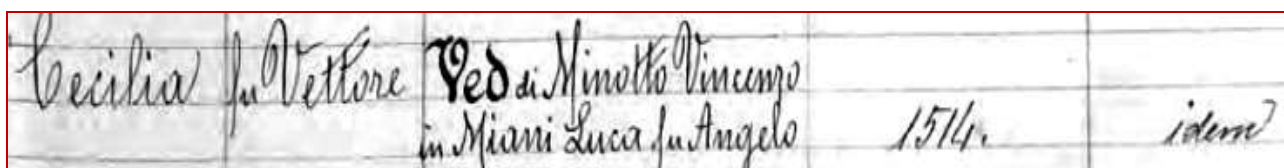 Cecilia fu Vettore Ved di Minotto Vincenzo
in Miani Luca fu Angelo 1514. idem